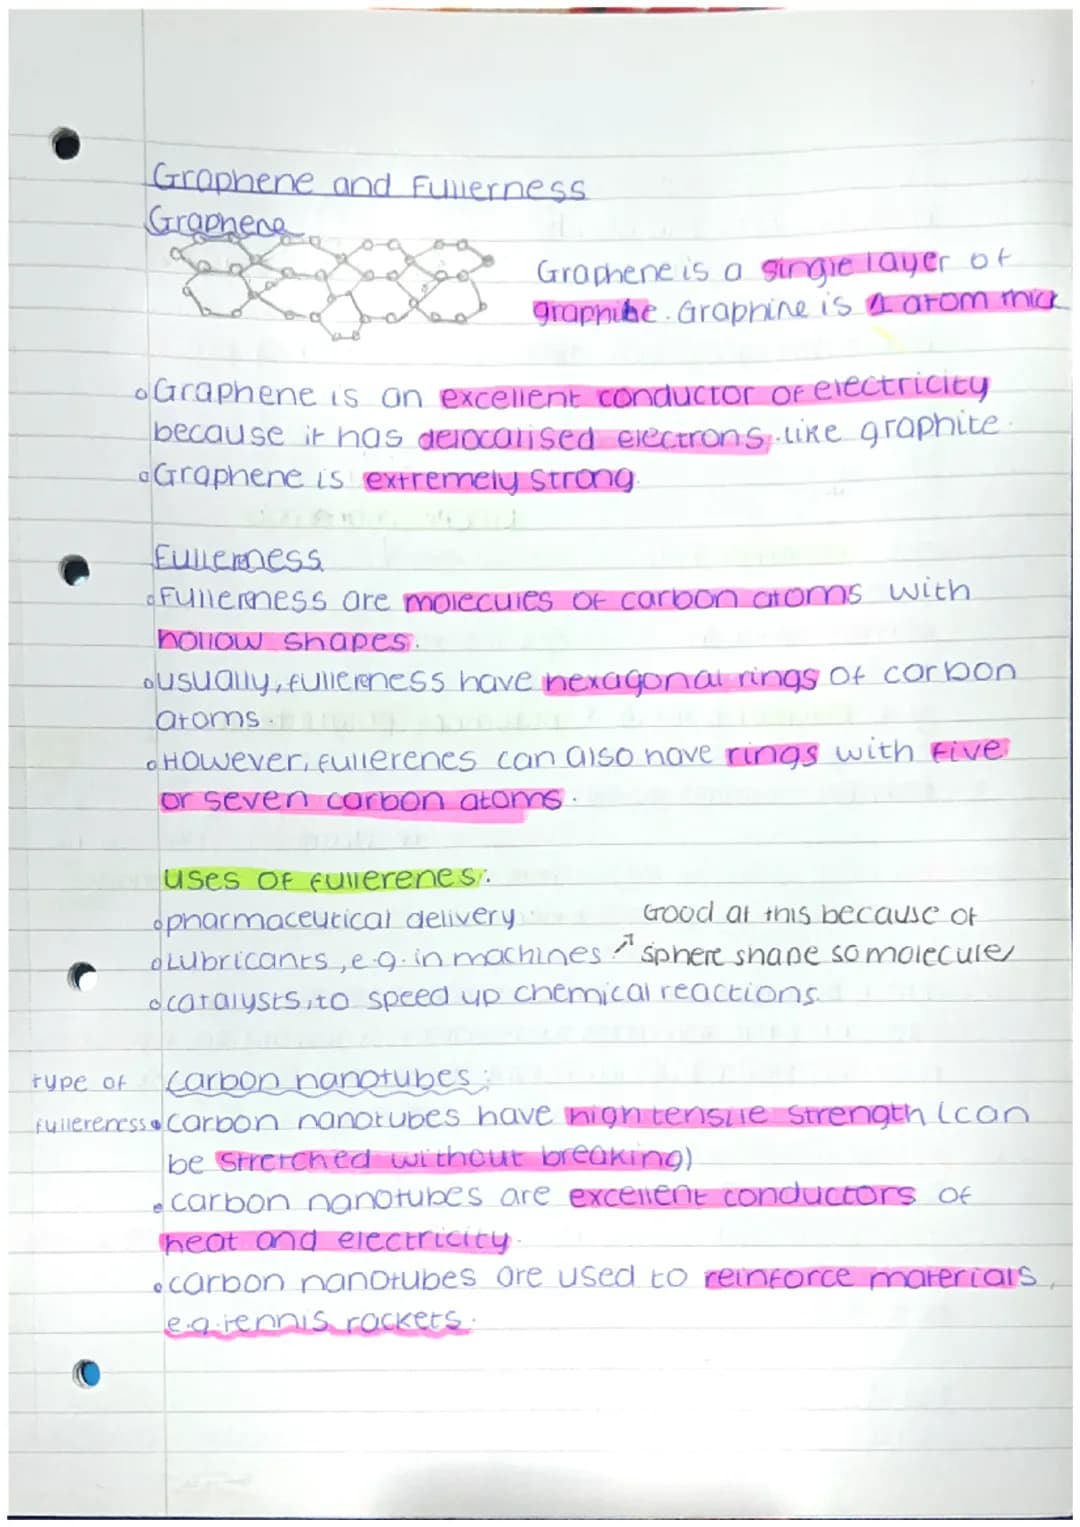 Graphene and Fullerness
Graphene
Graphene is a single layer of
graphite. Graphine is 1 atom thick
Graphene is an excellent conductor of electricity
because it has delocalised electrons, like graphite.
Graphene is extremely strong.
Fullerness
Fullerness are molecules of carbon atoms with
hollow shapes.
usually, fullereness have hexagonal rings of carbon
atoms.
However, fullerenes can also have rings with five
or seven carbon atoms.
uses of fullerenes:
pharmaceutical delivery
Good at this because of
Lubricants, e.g. in machines ↗ sphere shape so molecules
catalysts, to speed up chemical reactions.
type of carbon nanotubes:
fullereness carbon nanotubes have high tensile strength (can
be stretched without breaking)
carbon nanotubes are excellent conductors of
heat and electricity.
carbon nanotubes are used to reinforce materials,
e.g. tennis rackets.